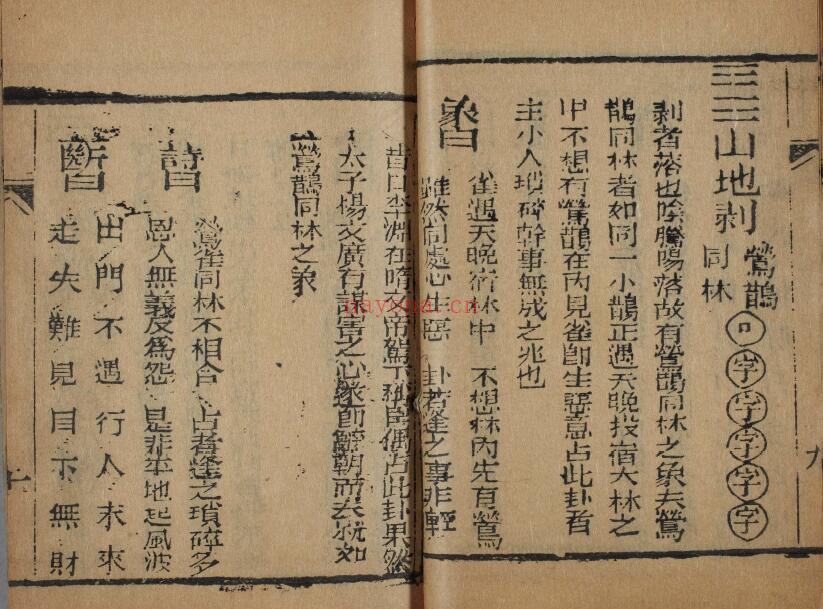 山地剥 鶯鵲同林 口字字字字字
剥者落也陰騰陽落故有鶯鵲同林之象夫鶯
鵲同林者如同一小鵲正遇天晚投宿大林之
中不想有鶯鵲在内見雀卽生惡意占此卦者
主小人瑣碎幹事無成之兆也
象曰
雀遇天晚宿林中 不想林内先有鶯
雖然同處心生惡 卦者逢之事非輕
昔日李淵在隋帝駕下稱臣偶占此卦果然
太子楊文廣有謀害之心遂卽辭朝而去就如
鶯鵲同林之象
詩曰
鶯雀同林不相合 占者逢之瑣碎多
恩人無義反為怨 是非平地起風波
斷曰
出門不遇行人未來
走失難見目下無財
九
十